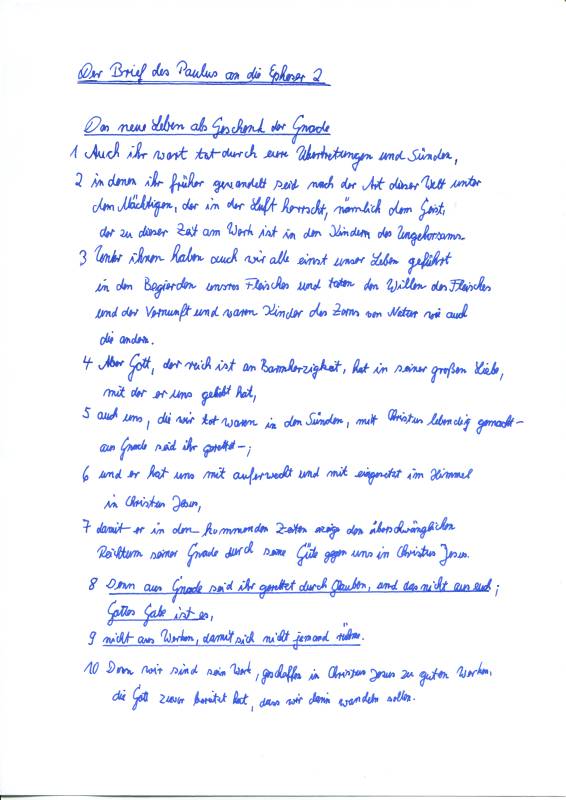 Der Brief des Paulus an die Epheser 2
Das neue Leben als Geschenk der Gnade
1 Auch ihr wart tot durch eure Übertretungen und Sünden,
2 in denen ihr früher gewandelt seid nach der Art dieser Welt unter
dem Mächtigen, der in der Luft herrscht, nämlich dem Geist,
der zu dieser Zeit am Werk ist in den Kindern des Ungehorsams.
3 Unter ihnen haben auch wir alle einst unser Leben geführt
in den Begierden unsres Fleisches und taten den Willen des Fleisches
und der Vernunft und waren Kinder des Zorns von Natur wie auch
die andern.
4 Aber Gott, der reich ist an Barmherzigkeit, hat in seiner großen Liebe,
mit der er uns geliebt hat,
5 auch uns, die wir tot waren in den Sünden, mit Christus lebendig gemacht –
aus Gnade seid ihr gerettet –;
6 und er hat uns mit auferweckt und mit eingesetzt im Himmel
in Christus Jesus,
7 damit er in den kommenden Zeiten erzeige den überschwänglichen
Reichtum seiner Gnade durch seine Güte gegen uns in Christus Jesus.
8 Denn aus Gnade seid ihr gerettet durch Glauben, und das nicht aus euch;
Gottes Gabe ist es,
9 nicht aus Werken, damit sich nicht jemand rühme.
10 Denn wir sind sein Werk, geschaffen in Christus Jesus zu guten Werken,
die Gott zuvor bereitet hat, dass wir darin wandeln sollen.